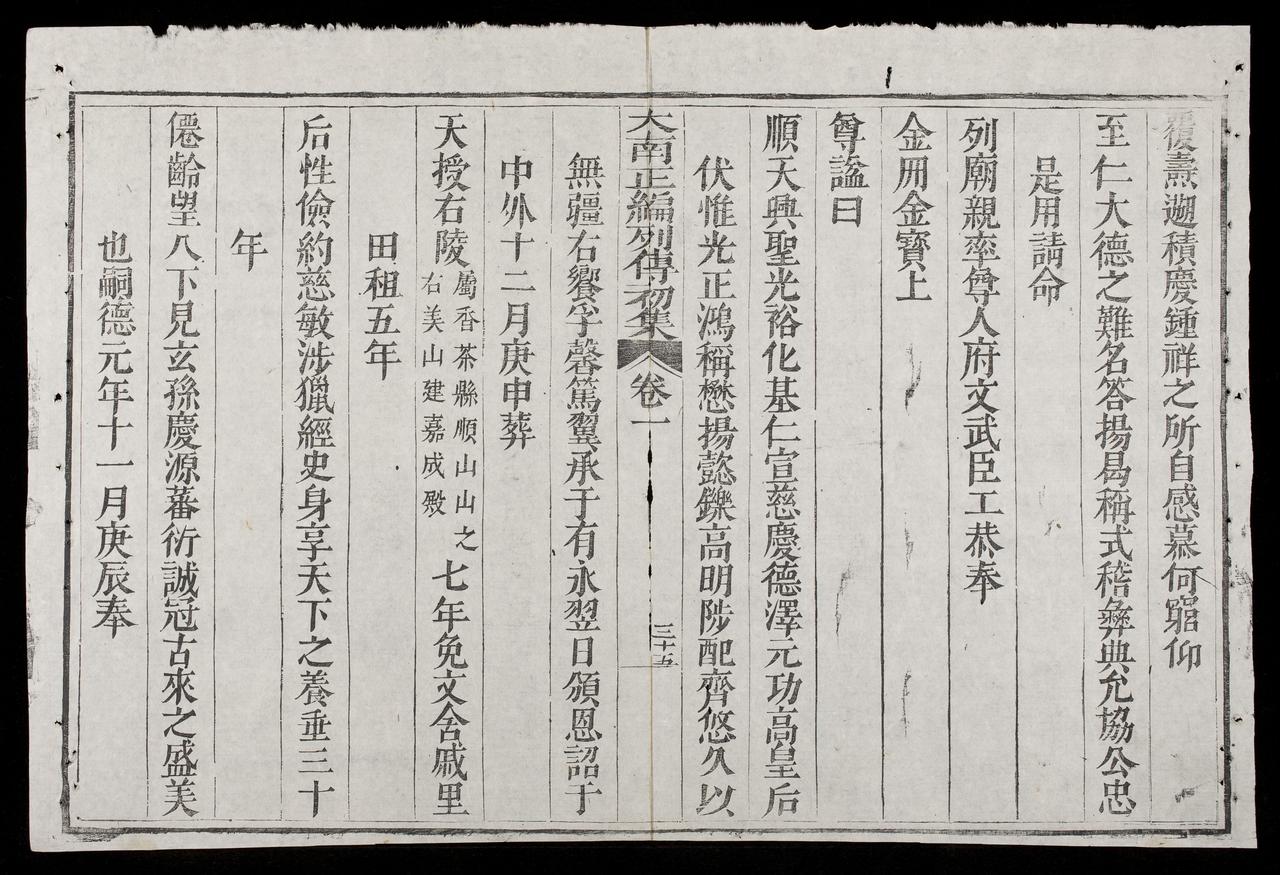 覆燾遡積慶鍾祥之所自感慕何窮仰
至仁大德之難名答揚曷稱式稽彝典允協公忠
是用請命
列廟親率尊人府文武臣工恭奉
金冊金寶上
尊謚曰
順天興聖光裕化基仁宣慈慶德澤元功高皇后
伏惟光正鴻稱懋揚懿鑠高明陟配齊悠久以
大南正編列傳初集 卷一 三十五
無疆右饗孚馨篤翼承于有永翌日頒恩詔于
中外十二月庚申葬
天授右陵屬香茶縣順山山之右美山建嘉成殿七年免文舍戚里
田租五年
后性儉約慈敏涉獵經史身享天下之養垂三十
年
僊齡望八下見玄孫慶源蕃衍誠冠古來之盛美
也嗣德元年十一月庚辰奉